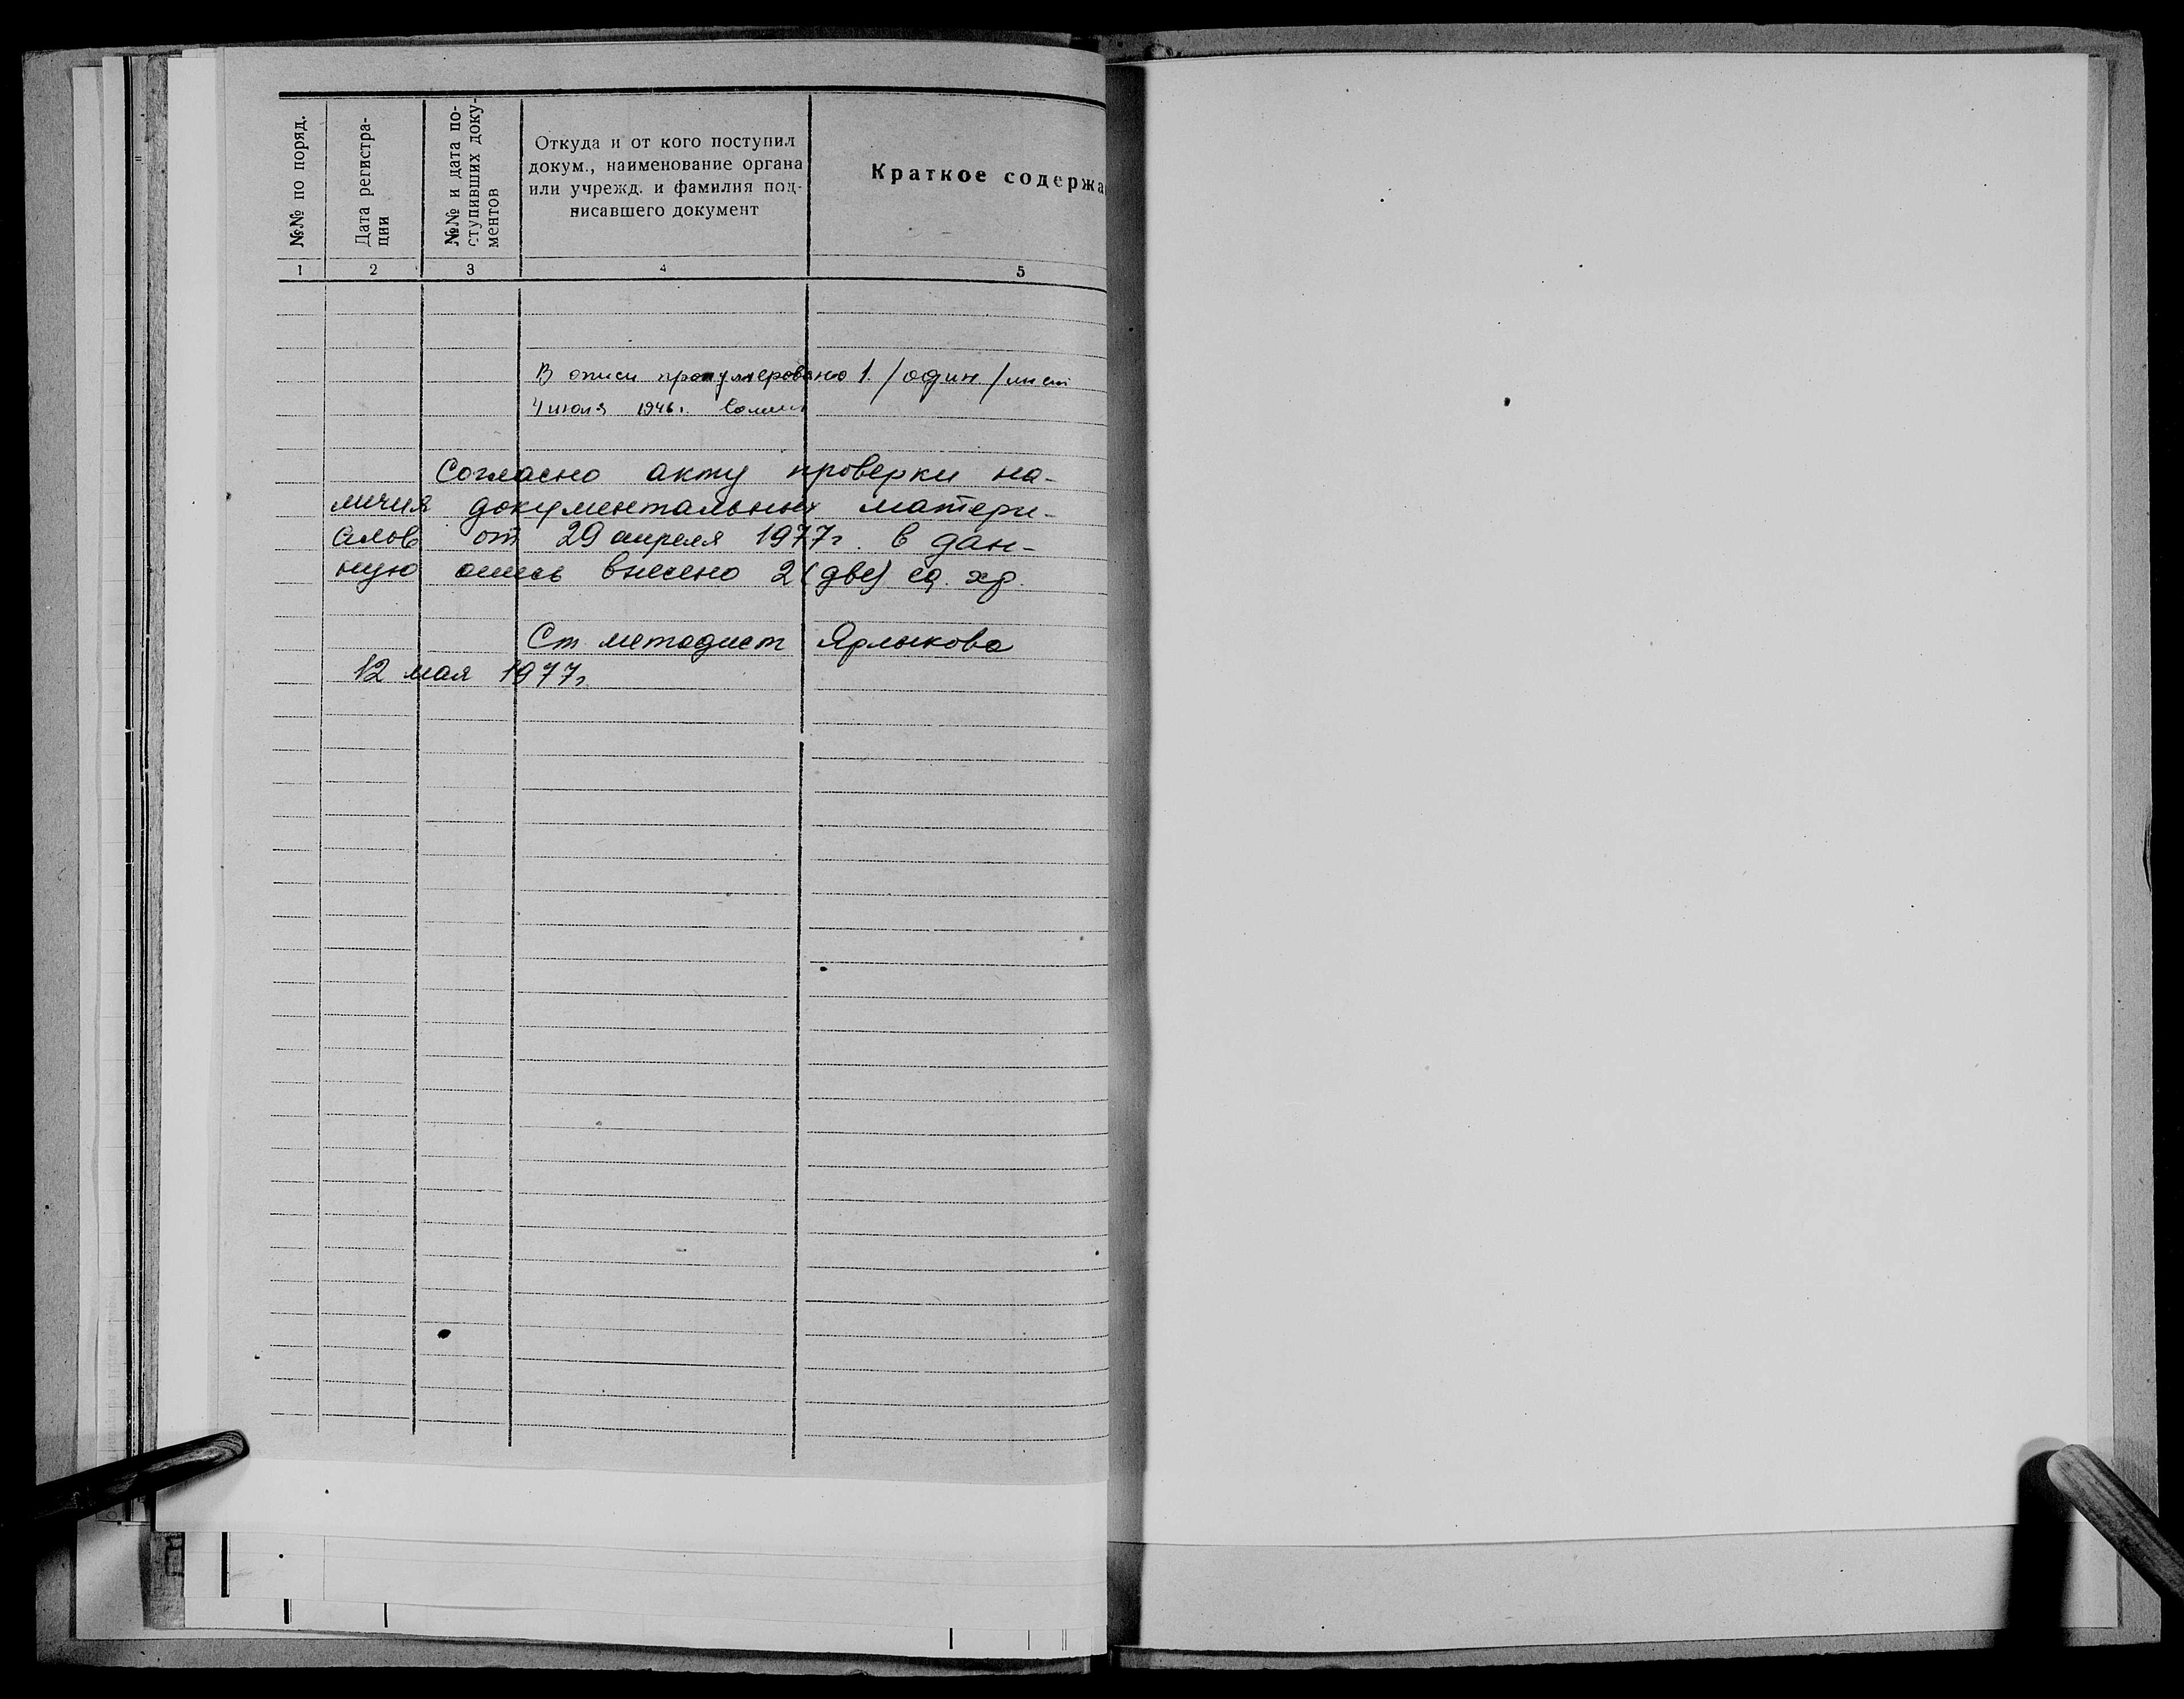 №№ по поряд.
Дата регистра-
ции
№№ и дата по-
ступивших доку-
ментов
Откуда и от кого поступил
докум., наименование органа
или учрежд. и фамилия под-
писавшего документ
Краткое содержа
1 2 3 4 5
В описи пронумеровано 1. /один/ лист
4 июля 1946г.
Согласно акту проверки на-
личия документальных матери-
алов от 29 апреля 1977г. в дан-
ную опись внесено 2 (две) ед. хр.
Ст методист Ярлыкова
12 мая 1977г.